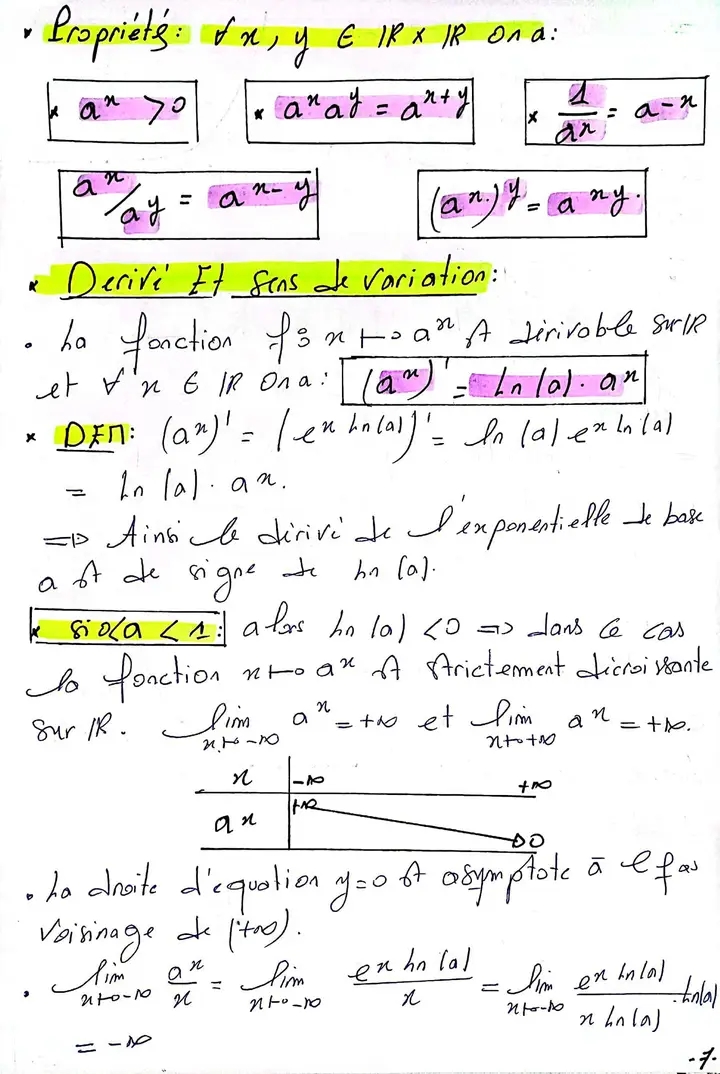 * Propriétés: ∀ x, y ∈ IR x IR On a:
* a^x > 0   * a^x a^y = a^(x+y)   * 1/a^x = a^(-x)
a^x/a^y = a^(x-y)   (a^x)^y = a^(xy).
* Derivé Et sens de variation:
• La fonction f: x ↦ a^x st dérivable sur IR
et ∀ x ∈ IR On a: (a^x)' = Ln(a). a^x
* DEM: (a^x)' = (e^(x Ln(a)))' = ln(a) e^(x ln(a))
= Ln(a). a^x.
=> Ainsi le dérivé de l'exponentielle de base
a st de signe de Ln(a).
* si 0<a<1: alors Ln(a) <0 => dans ce cas
la fonction x ↦ a^x st strictement décroissante
sur IR. lim x→-∞ a^x = +∞ et lim x→+∞ a^x = +∞.
x -∞ +∞
a^x +∞ 0
• La droite d'equation y=0 st asymptote à
voisinage de (+∞).
• lim x→-∞ a^x/x = lim x→-∞ e^(x Ln(a))/x = lim x→-∞ e^(x Ln(a))/(x Ln(a)) . Ln(a)
= -∞
-7-